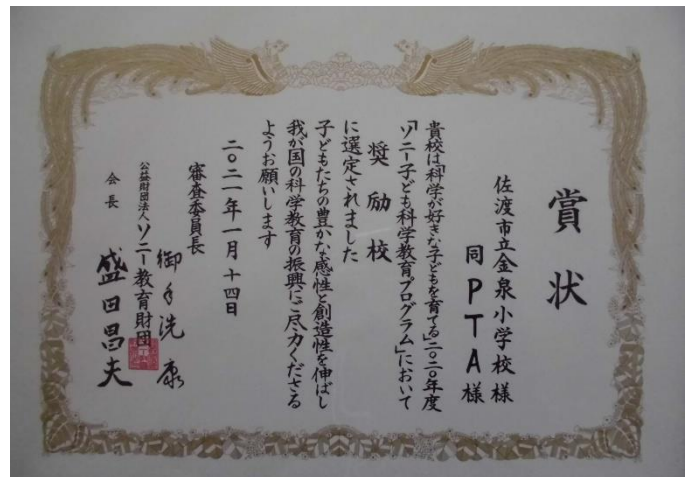 賞状
佐渡市立金泉小学校様
同PTA様
貴校は「科学が好きな子どもを育てる」二〇二〇年度
「ソニー子ども科学教育プログラム」において
奨励校
に選定されました
子どもたちの豊かな感性と創造性を伸ばし
我が国の科学教育の振興にご尽力くださる
ようお願いします
二〇二一年一月十四日
審査委員長
御手洗康
公益財団法人ソニー教育財団
会長
盛田昌夫